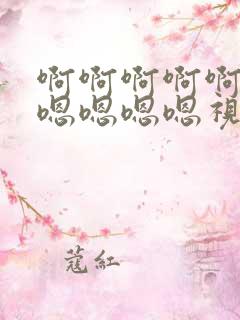 啊啊啊啊啊
嗯嗯嗯嗯視
蔻紅